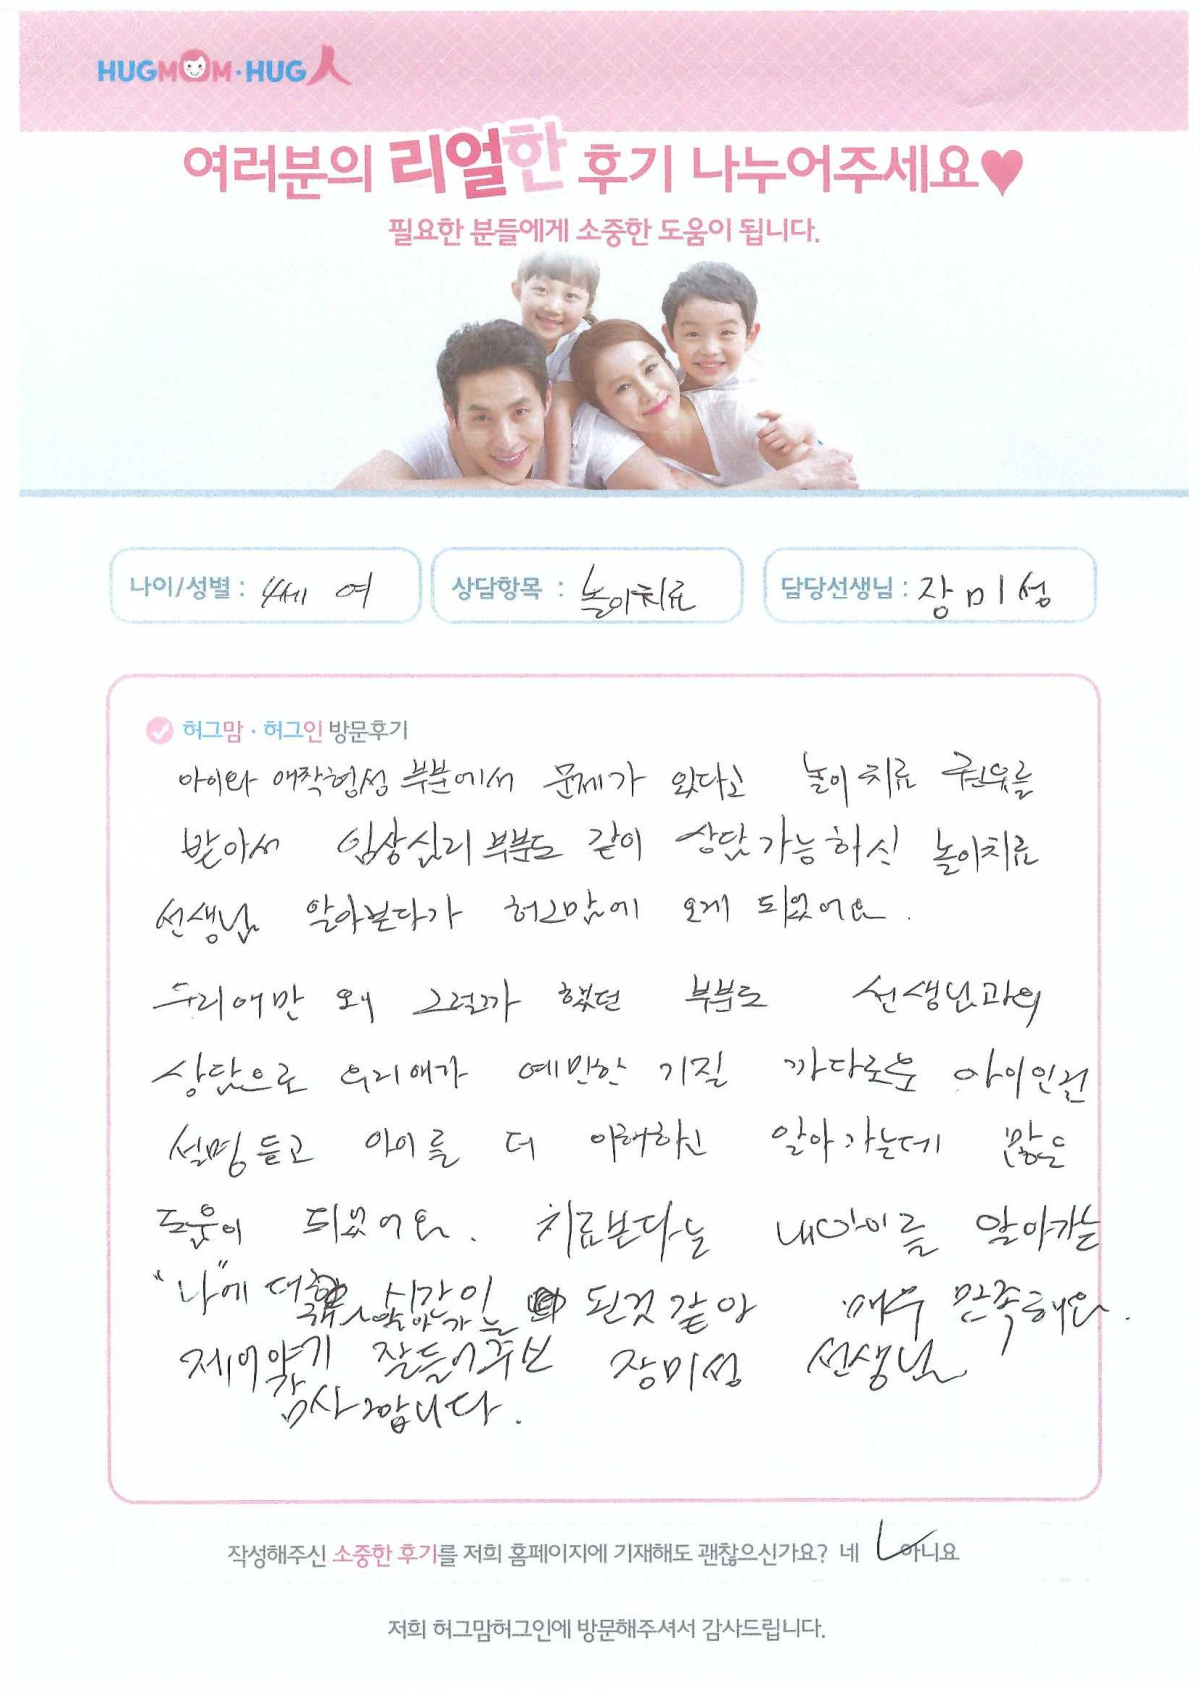 HUGMOM·HUG人
여러분의 리얼한 후기 나누어주세요♥
필요한 분들에게 소중한 도움이 됩니다.
나이/성별 : 4세 여
상담항목 : 놀이치료
담당선생님 : 장미성
허그맘 · 허그인 방문후기
아이와 애착형성 부분에서 문제가 있다고 놀이치료 권유를
받아서 임상심리 부분도 같이 상담가능하신 놀이치료
선생님 알아보다가 허그맘에 오게 되었어요.
우리애만 왜 그럴까 했던 부분도 선생님과의
상담으로 우리애가 예민한 기질 까다로운 아이인걸
설명듣고 아이를 더 이해하고 알아가는데 많은
도움이 되었어요. 치료보다는 내아이를 알아가는
"나"에 대해 알아가는 시간이 된것 같아 매우 만족해요.
제이야기 잘들어주신 장미성 선생님
감사합니다.
작성해주신 소중한 후기를 저희 홈페이지에 기재해도 괜찮으신가요? 네 아니요
저희 허그맘허그인에 방문해주셔서 감사드립니다.